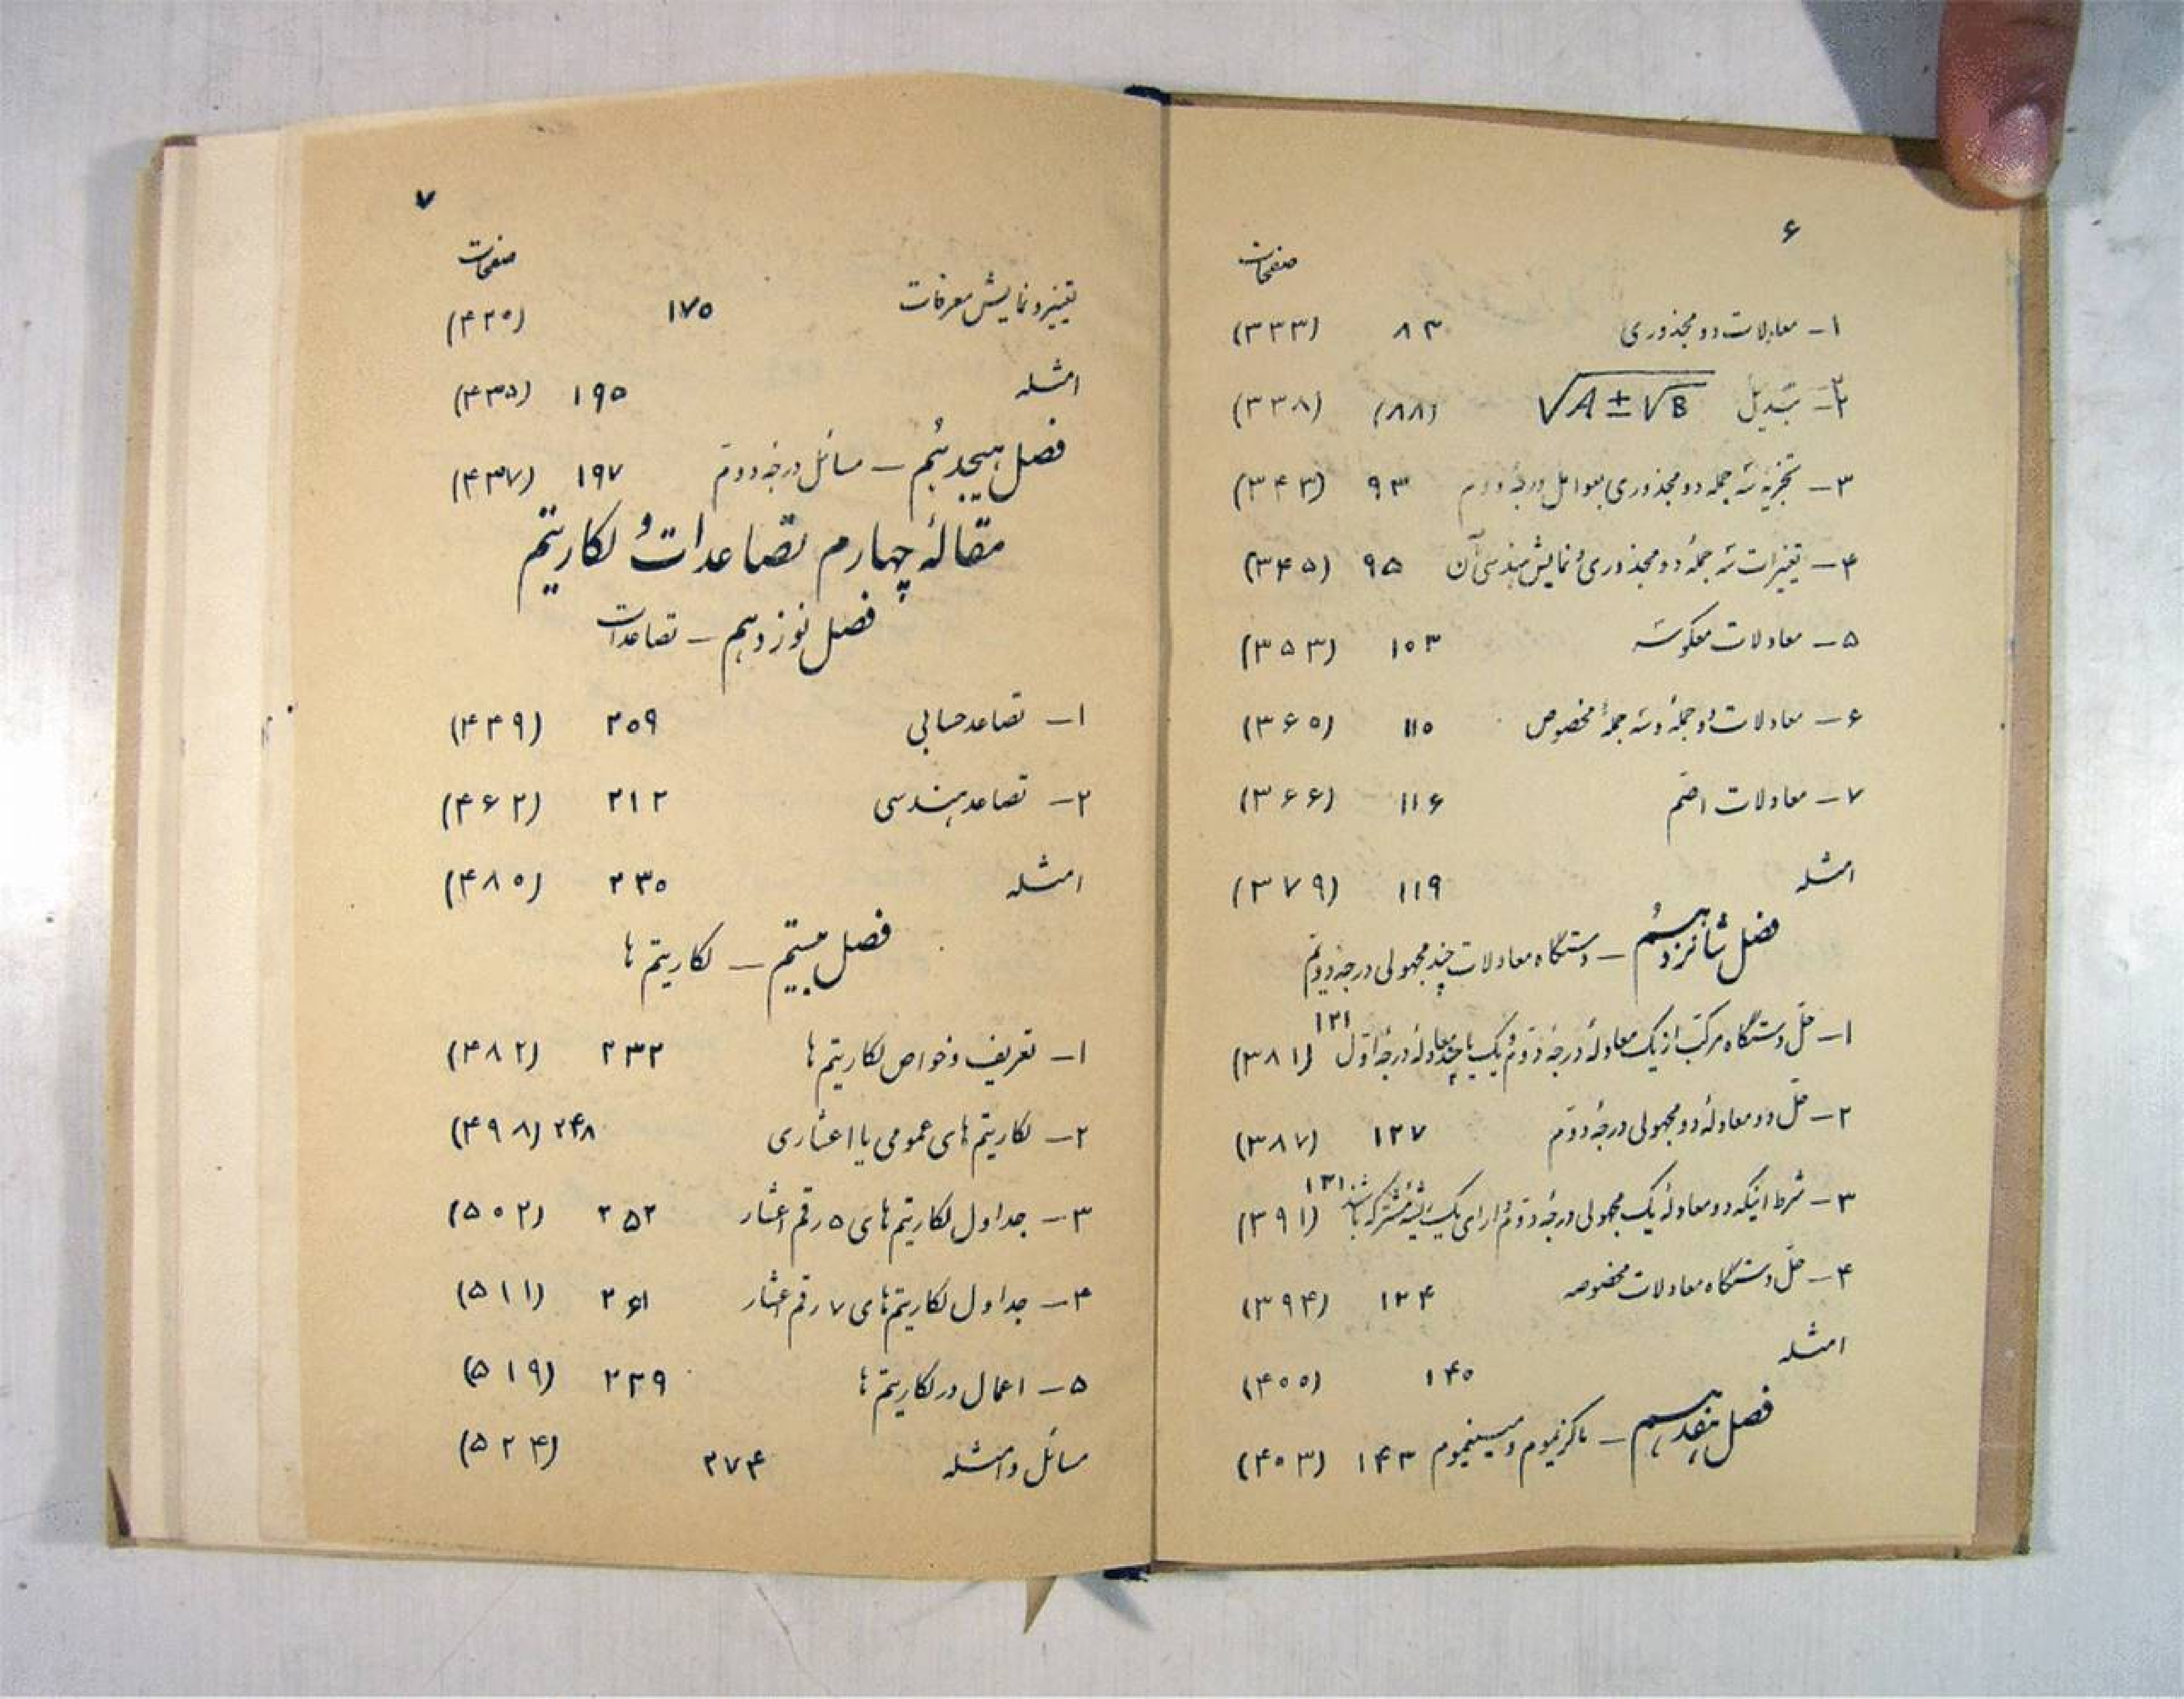 ۶
صفحات
۱ - معادلات دو مجذوری ۸۳ (۳۳۳)
۲ - تبدیل √A±√B (۸۸) (۳۳۸)
۳ - تجزیه سه جمله دو مجذوری بعوامل درجه دوم ۹۳ (۳۴۳)
۴ - تغییرات سه جملهٔ دو مجذوری و نمایش هندسی آن ۹۵ (۳۴۵)
۵ - معادلات معکوسه ۱۰۳ (۳۵۳)
۶ - معادلات دو جملهٔ و سه جملهٔ مخصوص ۱۱۰ (۳۶۰)
۷ - معادلات اصم ۱۱۶ (۳۶۶)
امثله ۱۱۹ (۳۷۹)
فصل شانزدهم - دستگاه معادلات چند مجهولی درجه دوم
۱ - حل دستگاه مرکب از یک معادلهٔ درجهٔ دوم و یک یا چند معادلهٔ درجهٔ اول ۱۲۱ (۳۸۱)
۲ - حل دو معادلهٔ دو مجهولی درجهٔ دوم ۱۲۷ (۳۸۷)
۳ - شرط اینکه دو معادلهٔ یک مجهولی درجهٔ دوم دارای یک ریشهٔ مشترک باشند ۱۳۱ (۳۹۱)
۴ - حل دستگاه معادلات مخصوصه ۱۳۴ (۳۹۴)
امثله ۱۴۰ (۴۰۰)
فصل هفدهم - ماکزیموم و مینیموم ۱۴۳ (۴۰۳)
۷
صفحات
تغییر و نمایش معرفات ۱۷۵ (۴۲۰)
امثله ۱۹۵ (۴۳۵)
فصل هیجدهم - مسائل درجه دوم ۱۹۷ (۴۳۷)
مقالهٔ چهارم تصاعدات و لگاریتم
فصل نوزدهم - تصاعدات
۱ - تصاعد حسابی ۲۰۹ (۴۴۹)
۲ - تصاعد هندسی ۲۱۲ (۴۶۲)
امثله ۲۳۰ (۴۸۰)
فصل بیستم - لگاریتم ها
۱ - تعریف و خواص لگاریتم ها ۲۳۲ (۴۸۲)
۲ - لگاریتم های عمومی یا اعشاری ۲۴۸ (۴۹۸)
۳ - جداول لگاریتم های ۵ رقم اعشار ۲۵۲ (۵۰۲)
۴ - جداول لگاریتم های ۷ رقم اعشار ۲۶۱ (۵۱۱)
۵ - اعمال در لگاریتم ها ۲۳۹ (۵۱۹)
مسائل و امثله ۲۷۴ (۵۲۴)